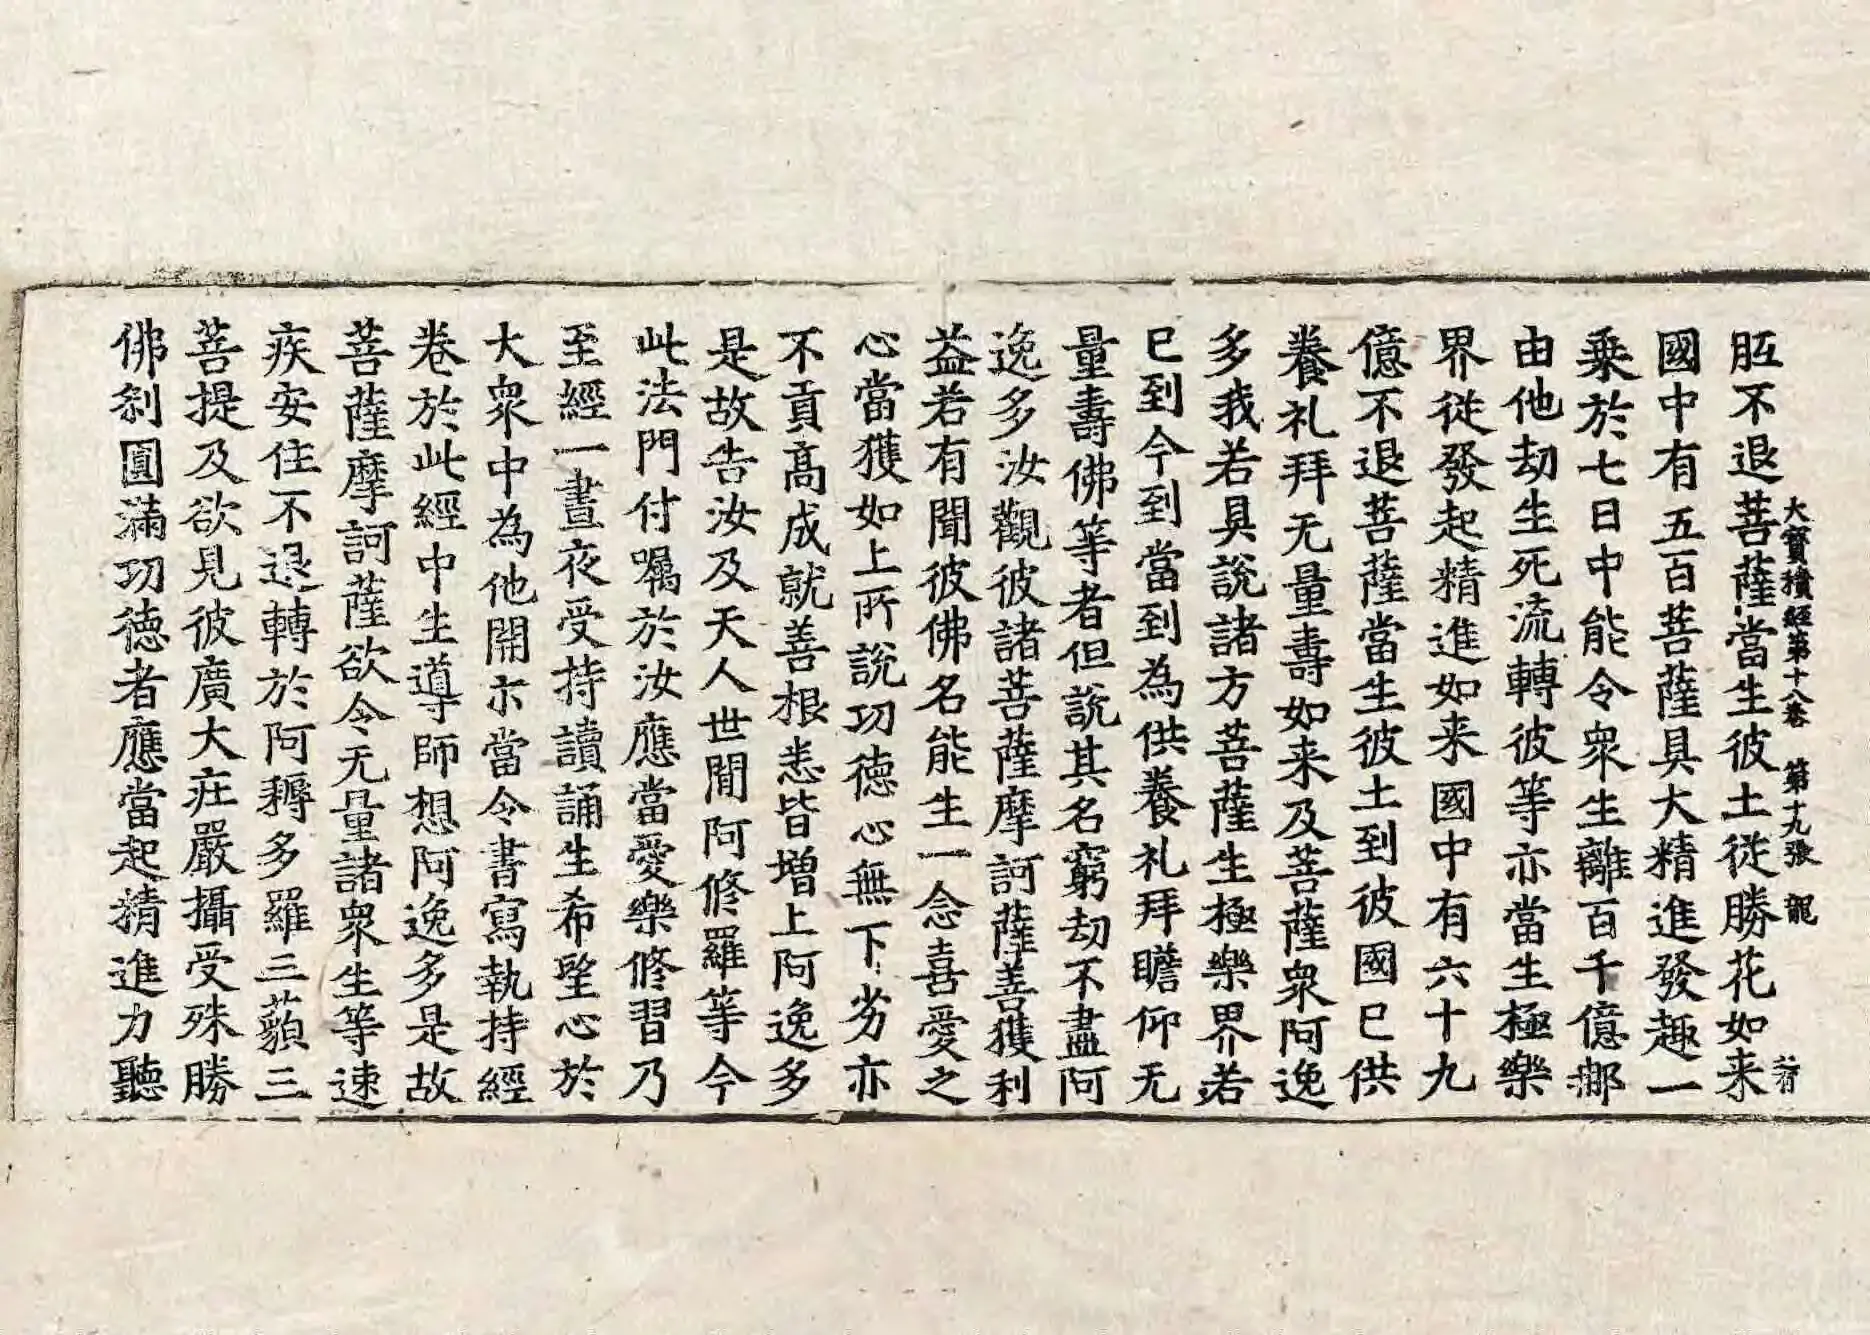 大寶積經第十八卷 第十九張 龍
胝不退菩薩當生彼土從勝花如来
國中有五百菩薩具大精進發趣一
乗於七日中能令衆生離百千億那
由他劫生死流轉彼等亦當生極樂
界從發起精進如来國中有六十九
億不退菩薩當生彼土到彼國已供
養礼拜无量壽如来及菩薩衆阿逸
多我若具說諸方菩薩生極樂界若
已到今到當到為供養礼拜瞻仰无
量壽佛等者但說其名窮劫不盡阿
逸多汝觀彼諸菩薩摩訶薩善獲利
益若有聞彼佛名能生一念喜愛之
心當獲如上所說功德心無下劣亦
不貢高成就善根悉皆增上阿逸多
是故告汝及天人世間阿修羅等今
此法門付囑於汝應當愛樂修習乃
至經一晝夜受持讀誦生希望心於
大衆中為他開示當令書寫執持經
卷於此經中生導師想阿逸多是故
菩薩摩訶薩欲令无量諸衆生等速
疾安住不退轉於阿耨多羅三藐三
菩提及欲見彼廣大莊嚴攝受殊勝
佛刹圓滿功德者應當起精進力聽